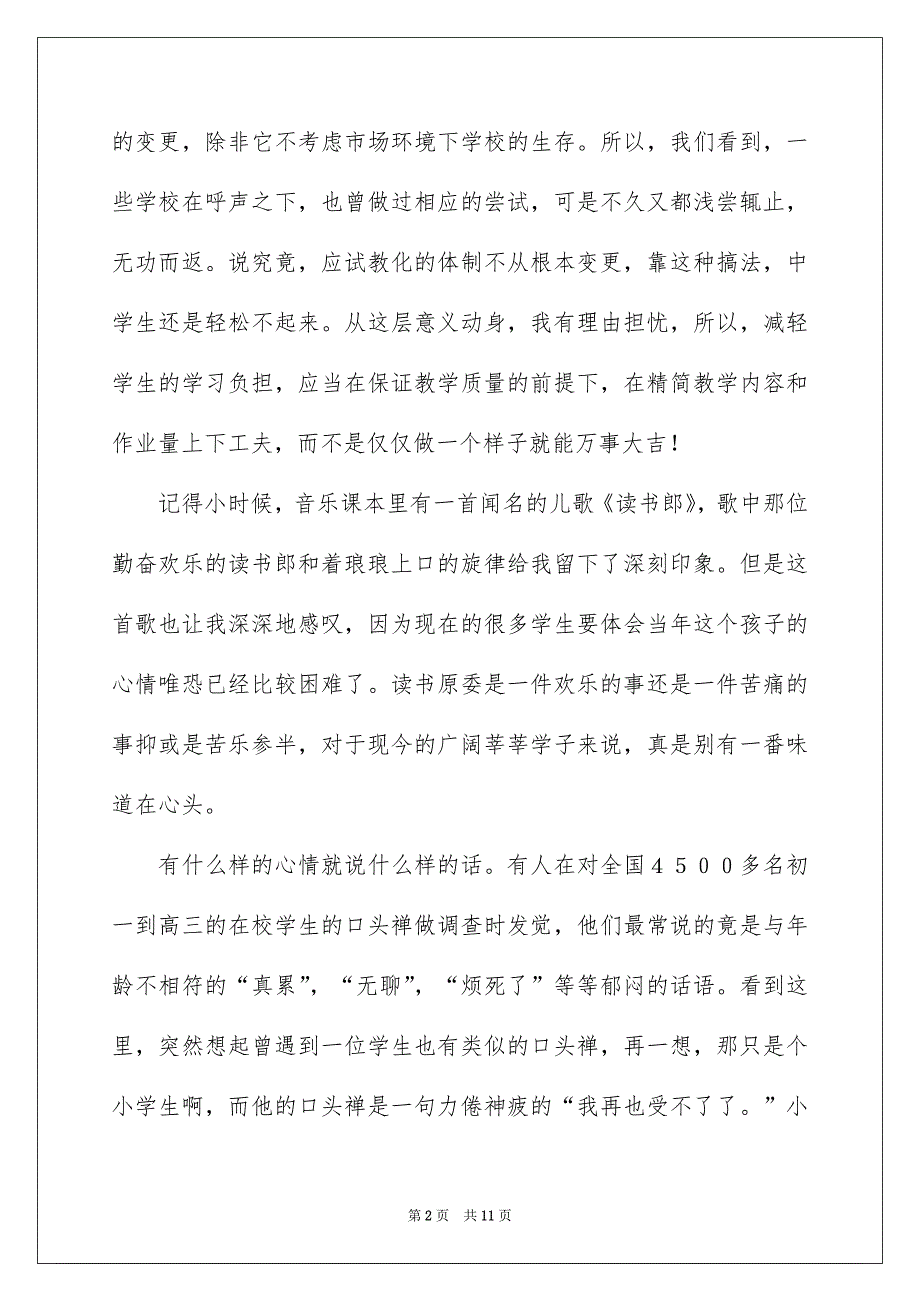 的变更，除非它不考虑市场环境下学校的生存。所以，我们看到，一
些学校在呼声之下，也曾做过相应的尝试，可是不久又都浅尝辄止，
无功而返。说究竟，应试教化的体制不从根本变更，靠这种搞法，中
学生还是轻松不起来。从这层意义动身，我有理由担忧，所以，减轻
学生的学习负担，应当在保证教学质量的前提下，在精简教学内容和
作业量上下工夫，而不是仅仅做一个样子就能万事大吉！
记得小时候，音乐课本里有一首闻名的儿歌《读书郎》，歌中那位
勤奋欢乐的读书郎和着琅琅上口的旋律给我留下了深刻印象。但是这
首歌也让我深深地感叹，因为现在的很多学生要体会当年这个孩子的
心情唯恐已经比较困难了。读书原委是一件欢乐的事还是一件苦痛的
事抑或是苦乐参半，对于现今的广阔莘莘学子来说，真是别有一番味
道在心头。
有什么样的心情就说什么样的话。有人在对全国４５００多名初
一到高三的在校学生的口头禅做调查时发觉，他们最常说的竟是与年
龄不相符的“真累”，“无聊”，“烦死了”等等郁闷的话语。看到这
里，突然想起曾遇到一位学生也有类似的口头禅，再一想，那只是个
小学生啊，而他的口头禅是一句力倦神疲的“我再也受不了了。”小
第 2 页 共 11 页